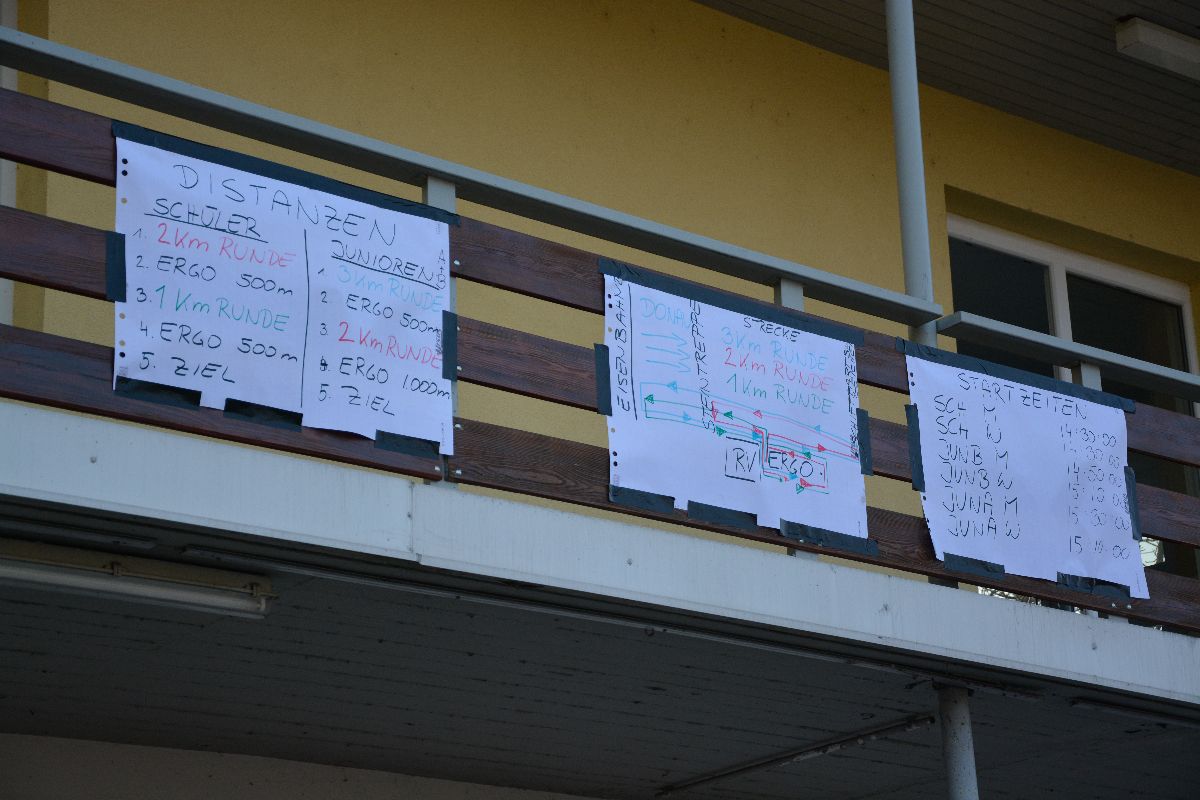 DISTANZEN
SCHÜLER
1. 2Km RUNDE
2. ERGO 500m
3. 1Km RUNDE
4. ERGO 500m
5. ZIEL
JUNIOREN A+B
1. 3Km RUNDE
2. ERGO 500m
3. 2Km RUNDE
4. ERGO 1.000m
5. ZIEL
EISENBAHN
DONAU
STEINTREPPE
STRECKE
3Km RUNDE
2Km RUNDE
1Km RUNDE
RV
ERGO
STARTZEITEN
SCH M 14:30:00
SCH W
JUNB M
JUNB W
JUNA M
JUNA W